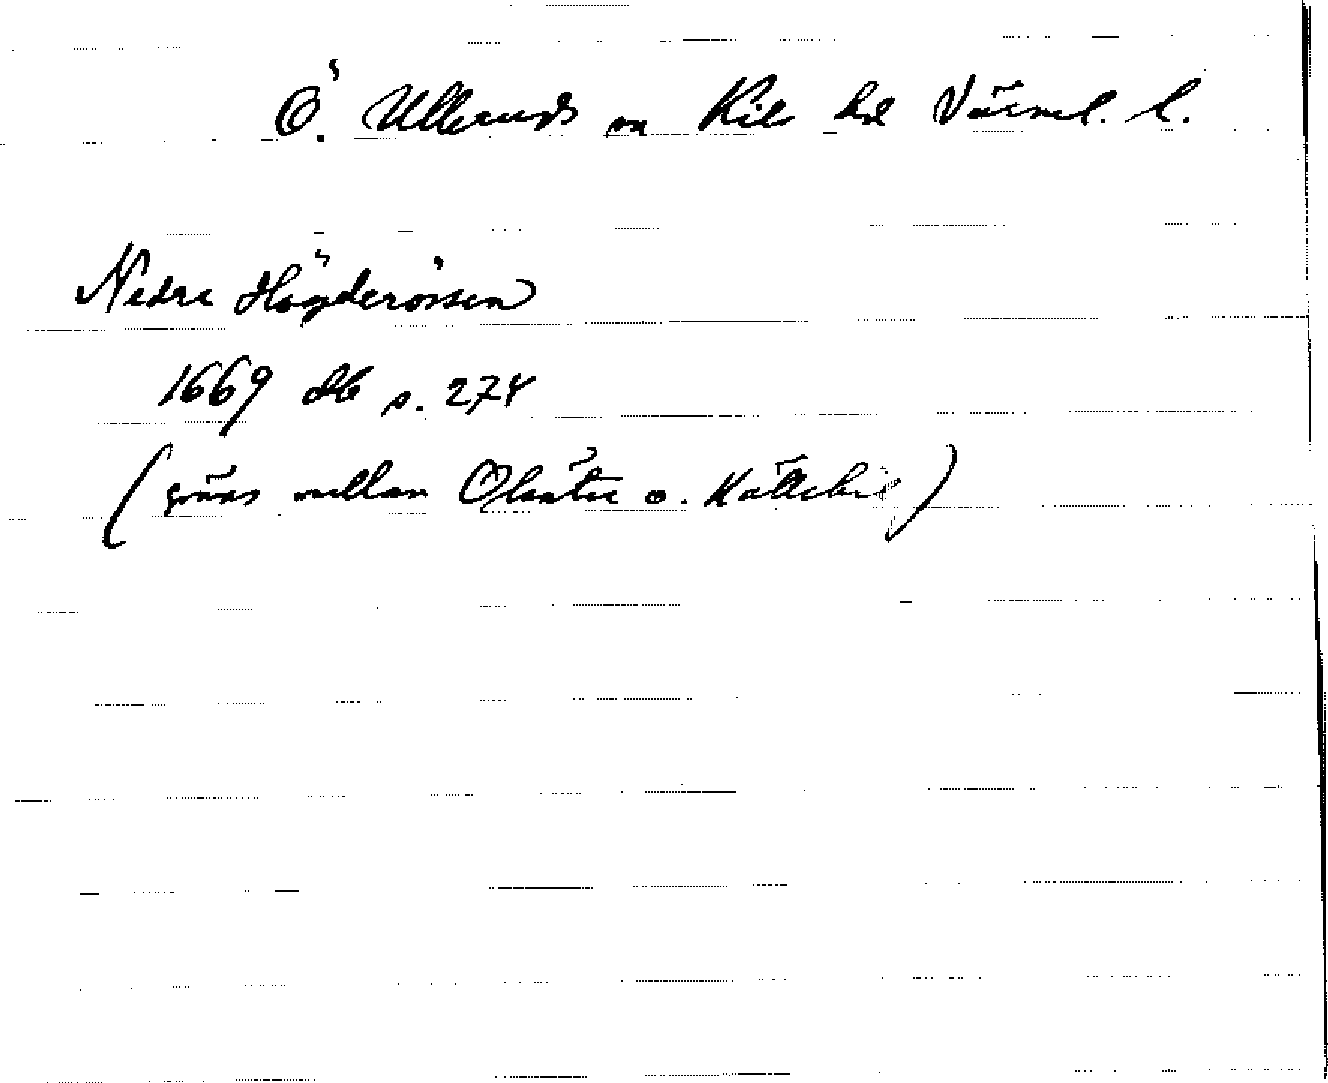 Ö. Ulleruds sn Kils hd Värml. l.
Nedre Högderössen
1669 db s. 274
(gräns mellan Olsäter o. Kättebol)